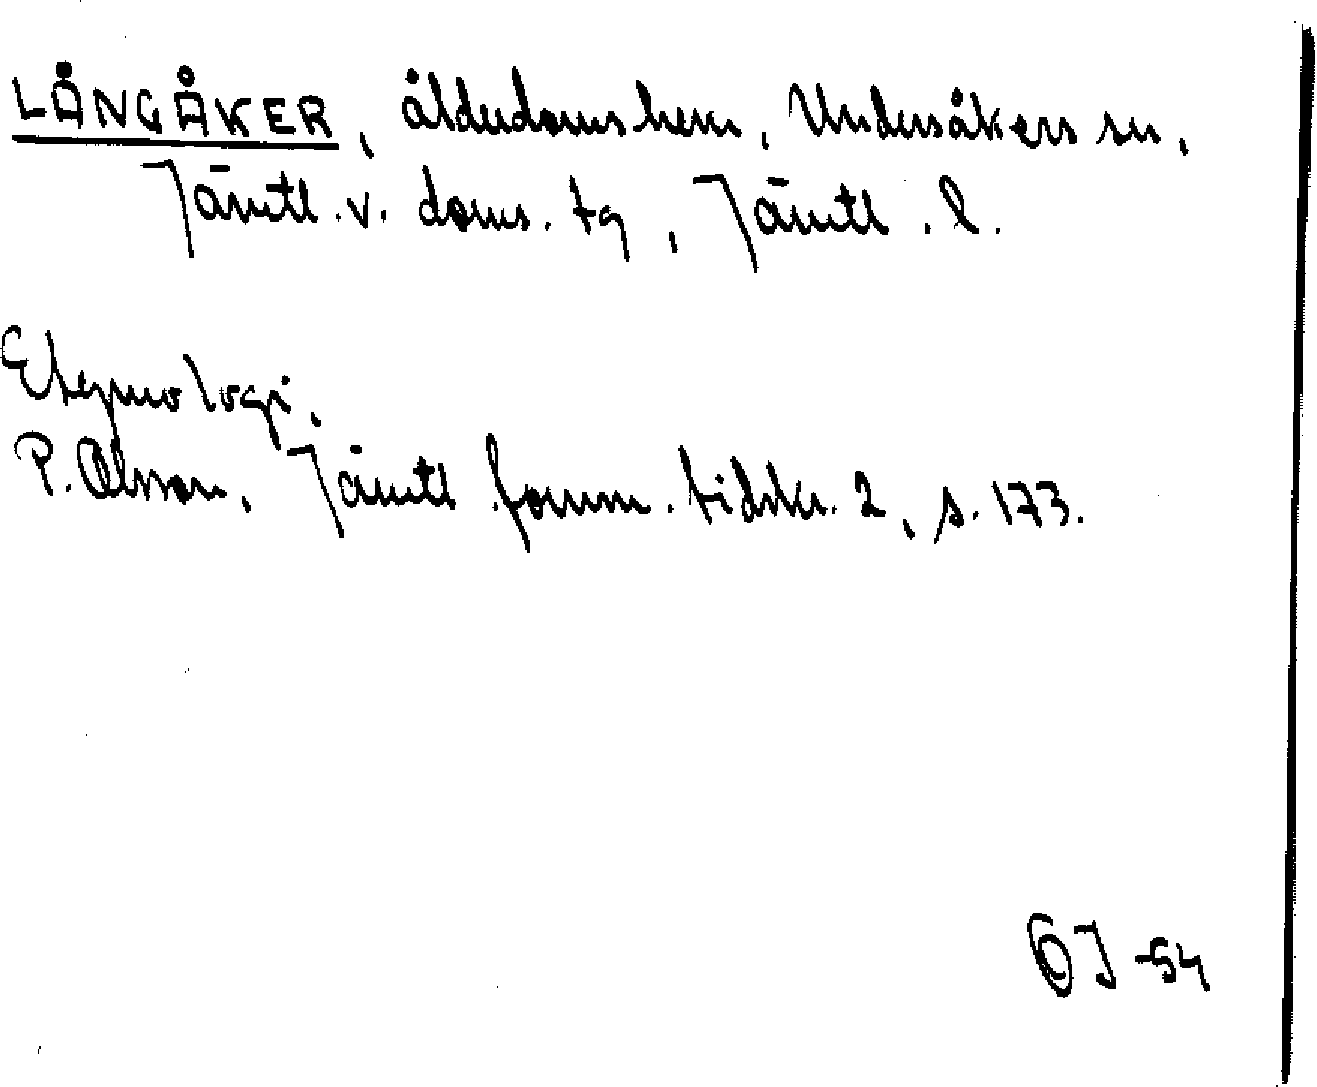 LÅNGÅKER, ålderdomshem, Undersåkers sn,
Jämtl. v. doms. tg, Jämtl. l.
Etymologi.
P. Olsson, Jämtl. fornm. tidskr. 2, s. 173.
OJ -54